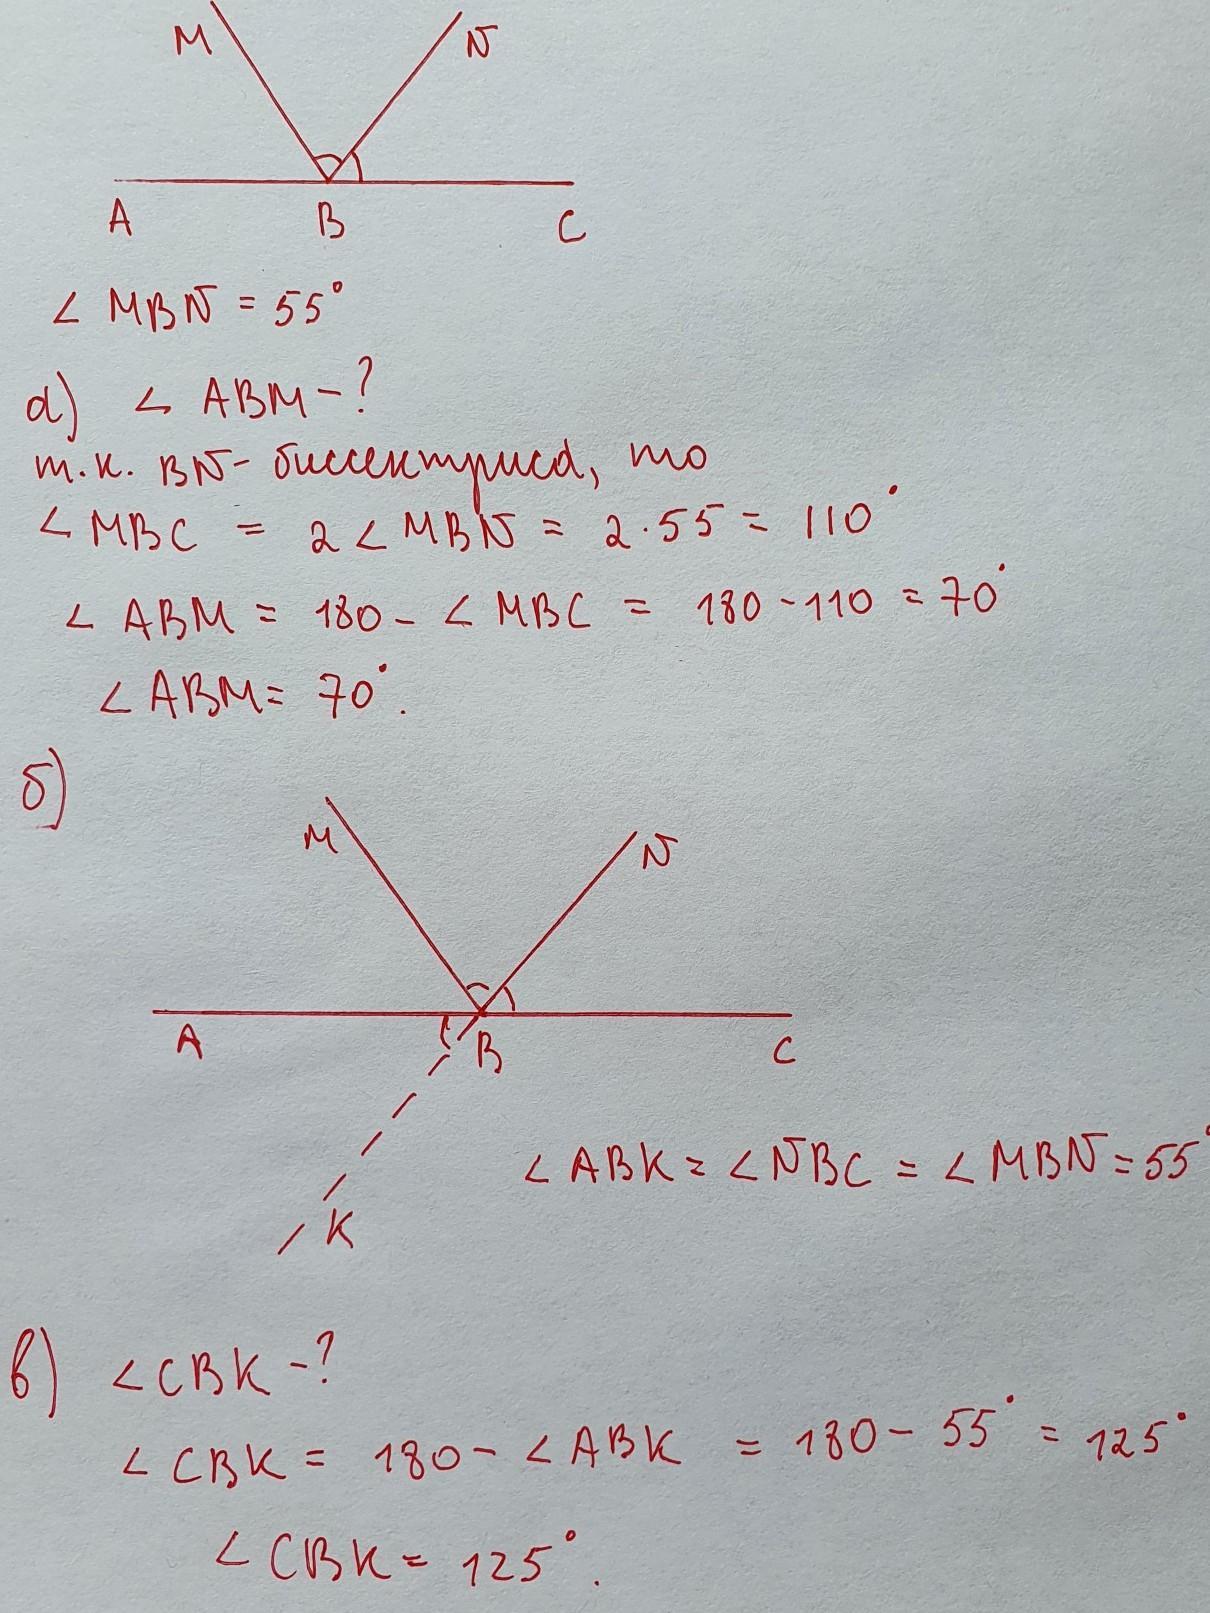 M N
A B C
∠ MBN = 55°
а) ∠ ABM - ?
т.к. BN - биссектриса, то
∠ MBC = 2 ∠ MBN = 2 · 55 = 110°
∠ ABM = 180 - ∠ MBC = 180 - 110 = 70°
∠ ABM = 70°.
б)
M N
A B C
∠ ABK = ∠ NBC = ∠ MBN = 55°
K
в) ∠ CBK - ?
∠ CBK = 180 - ∠ ABK = 180 - 55° = 125°
∠ CBK = 125°.